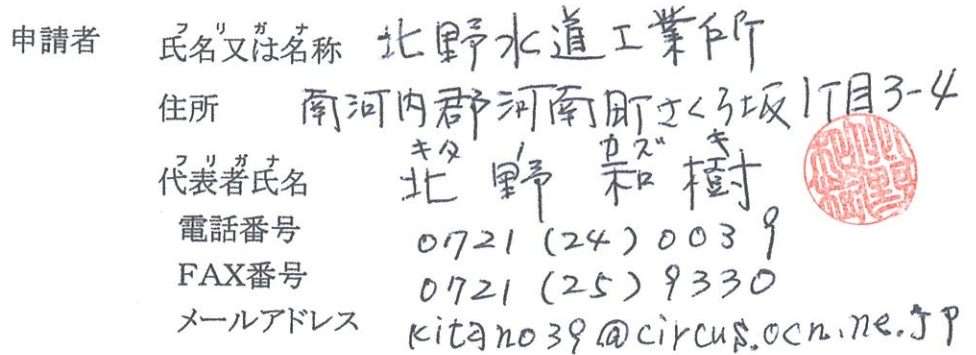 申請者
フリガナ
氏名又は名称 北野水道工業所
住所 南河内郡河南町さくら坂1丁目3-4
フリガナ キタ ノ カズ キ
代表者氏名 北野 和樹
電話番号 0721(24)0039
FAX番号 0721(25)9330
メールアドレス kitano39@circus.ocn.ne.jp